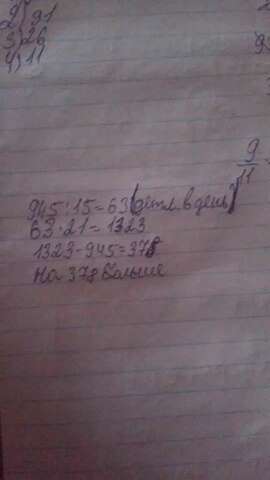 2) 91
3) 26
4) 11
9
9
11
945:15=63(детл. в день)
63·21=1323
1323-945=378
На 378 больше